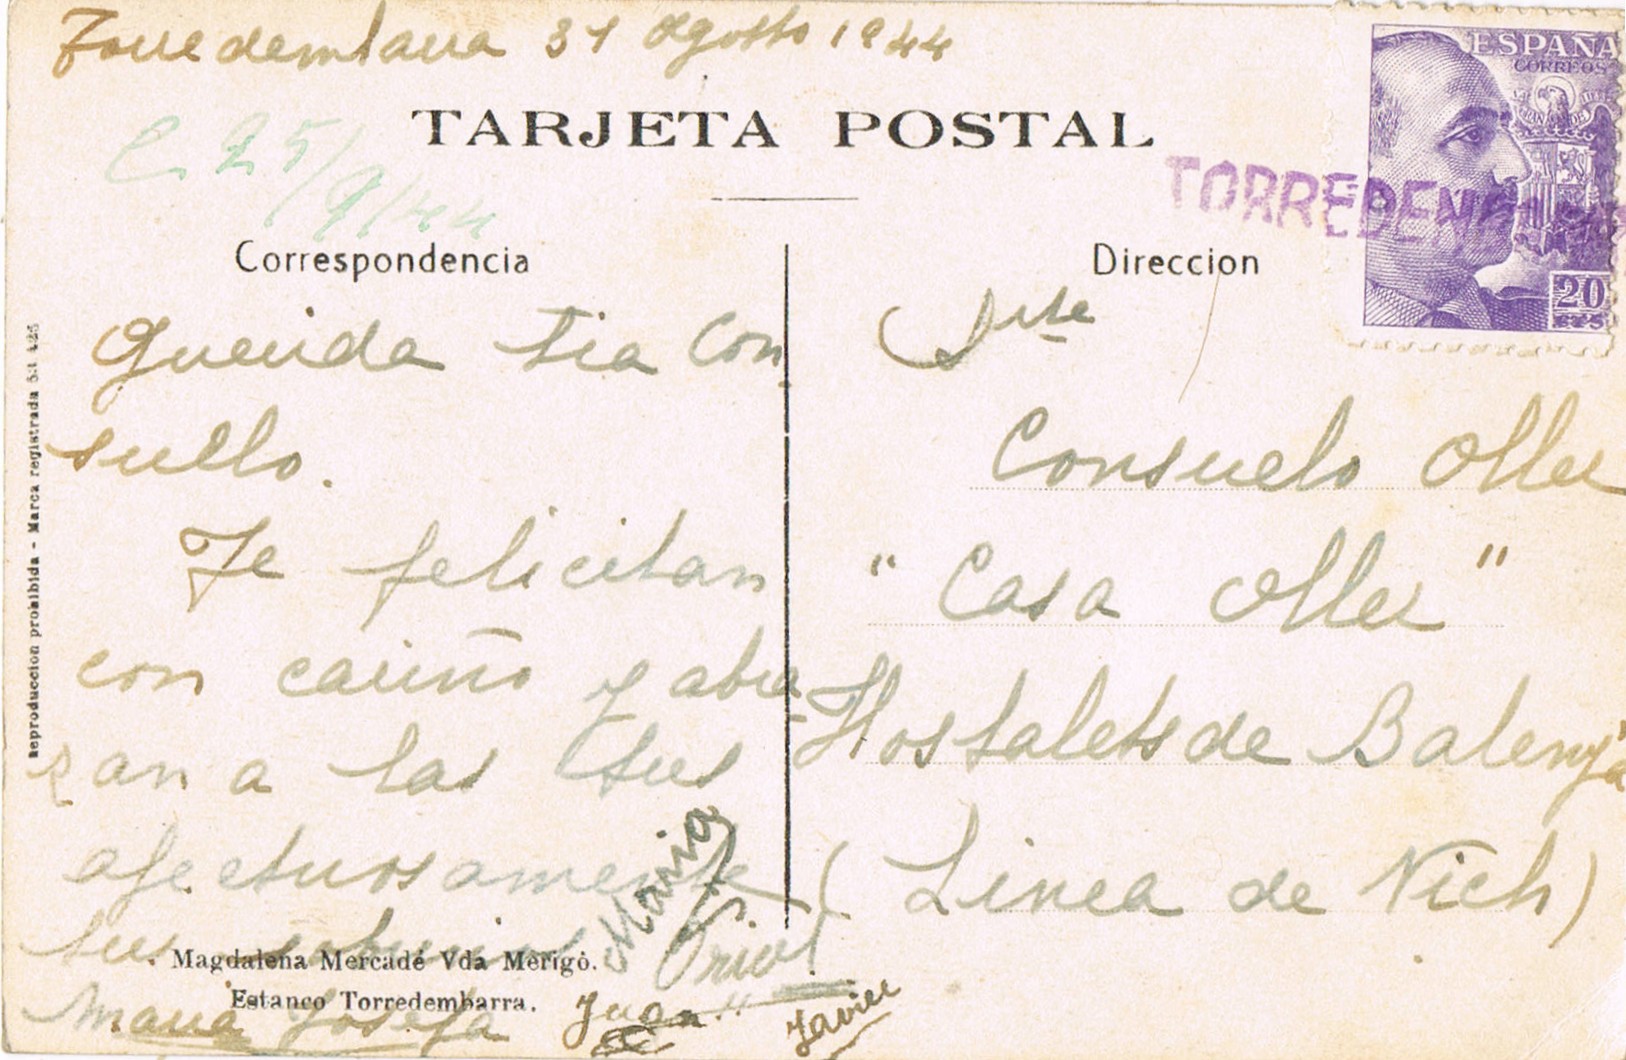 Torredembarra 31 Agosto 1944
TARJETA POSTAL
C. 25/9/44
ESPAÑA
CORREOS
20
CTS
TORREDEMBARRA
Correspondencia
Querida Tia Con
suelo.
Te felicitan
con cariño y abra
zan a las tres
afectuosamente
sus sobrinos
Maria Josefa Juan Maria Oriol Javier
Direccion
Srta
Consuelo Oller
"Casa Oller"
Hostalets de Balenyá
(Linea de Vich)
Magdalena Mercadé Vda Merigó.
Estanco Torredembarra.
Reproduccion prohibida - Marca registrada